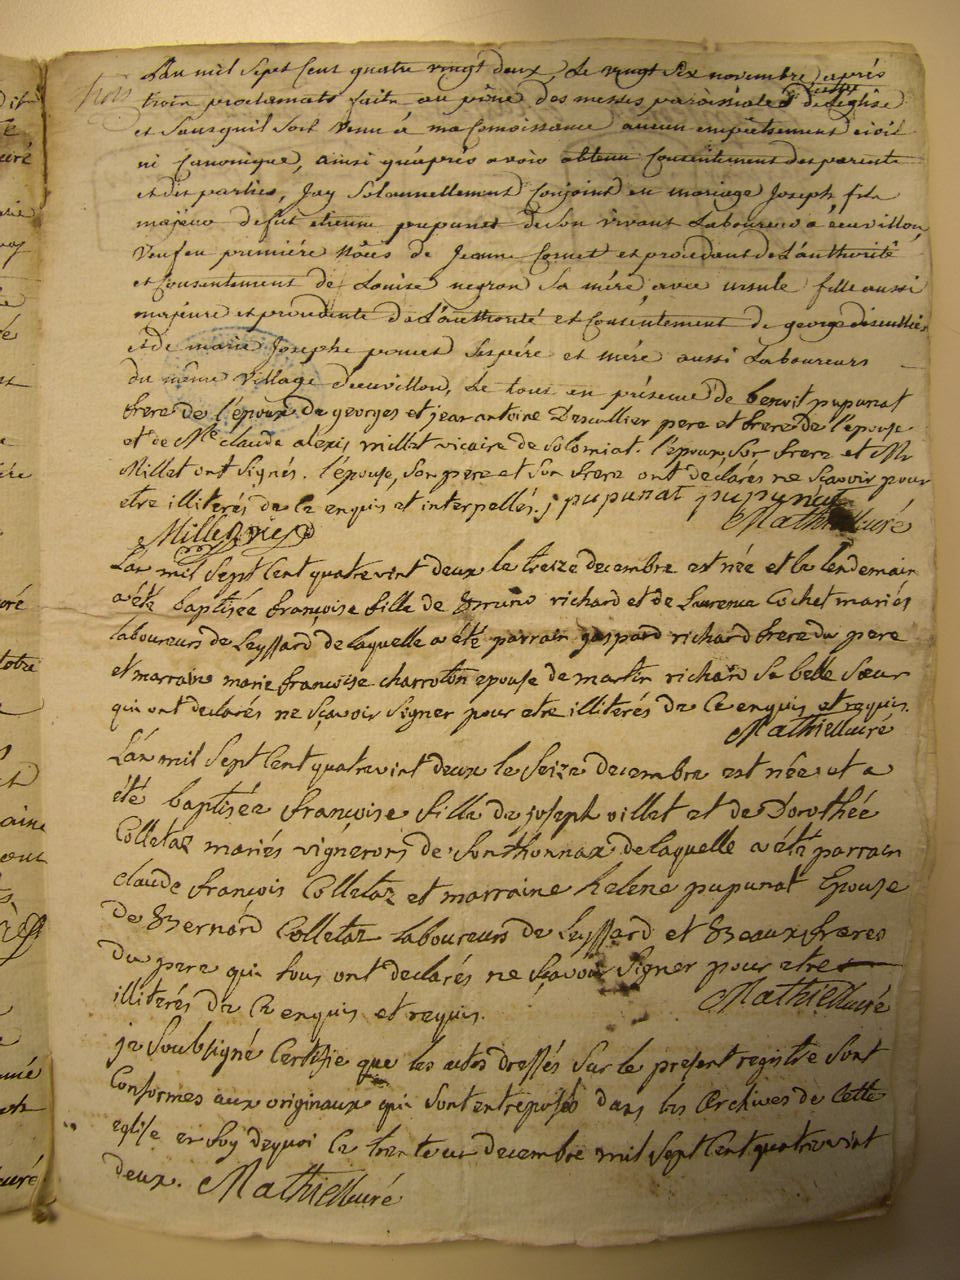 L'an mil sept cent quatre vingt deux, Le vingt six novembre, après
trois proclamats faits au prône des messes paroissiales de cette Eglise
et sans quil soit venu à ma Connoissance aucun empêchement civil
ni Canonique, ainsi qu'après avoir obtenu Consentement des parents
et des parties, J'ay Solannellement Conjoint en mariage Joseph fils
majeur defut etienne pupunat de son vivant Laboureur à écuvillon,
Veuf en première nôces de Jeanne Cornet et procedant de L'authorité
et Consentement de Louise negron Sa mére avec ursule fille aussi
majeure et procedante de L'authorité et Consentement de george
et de marie Josephe poncet Ses pére et mére aussi Laboureurs
du même Village d'ecuvillon, Le tout en présence de benoit pupunat
frere de l'époux de georges et jean antoine Descullier pere et frere de l'épouse
et de Mre claude alexis millet vicaire de Solomiat. l'époux, son frere et Mr
Millet ont signés. l'épouse, son pere et son frere ont déclarés ne sçavoir pour
etre illiterés de ce enquis et interpellés. j pupunat pupunat
Millet vic Mathieu curé
L'an mil sept Cent quatrevint deux le treize decembre est née et le lendemain
a été baptisée françoise fille de Bruno richard et de Laurence Cochet mariés
laboureurs de Leyssard de laquelle a été parrain gaspard richard frere du pere
et marraine marie françoise charroton epouse de martin richard Sa belle Sœur
qui ont declarés ne sçavoir signer pour etre illiterés de Ce enquis et requis.
Mathieu curé
L'an mil Sept Cent quatrevint deux le Seize decembre est née et a
été baptisée françoise fille de joseph villet et de Dorothée
Colletaz mariés vignerons de Sonthonnax de laquelle a été parrain
claude françois Colletaz et marraine helene pupunat Epouse
de Bernard Colletaz Laboureurs de Leyssard et Beaux freres
du pere qui tous ont declarés ne sçavoir signer pour etre
illiterés de Ce enquis et requis. Mathieu curé
je Soubsigné Certifie que les actes dressés Sur le present registre Sont
Conformes aux originaux qui Sont entreposés dans les Archives de Cette
eglise en foy dequoi Ce trente un decembre mil Sept Cent quatrevint
deux. Mathieu curé